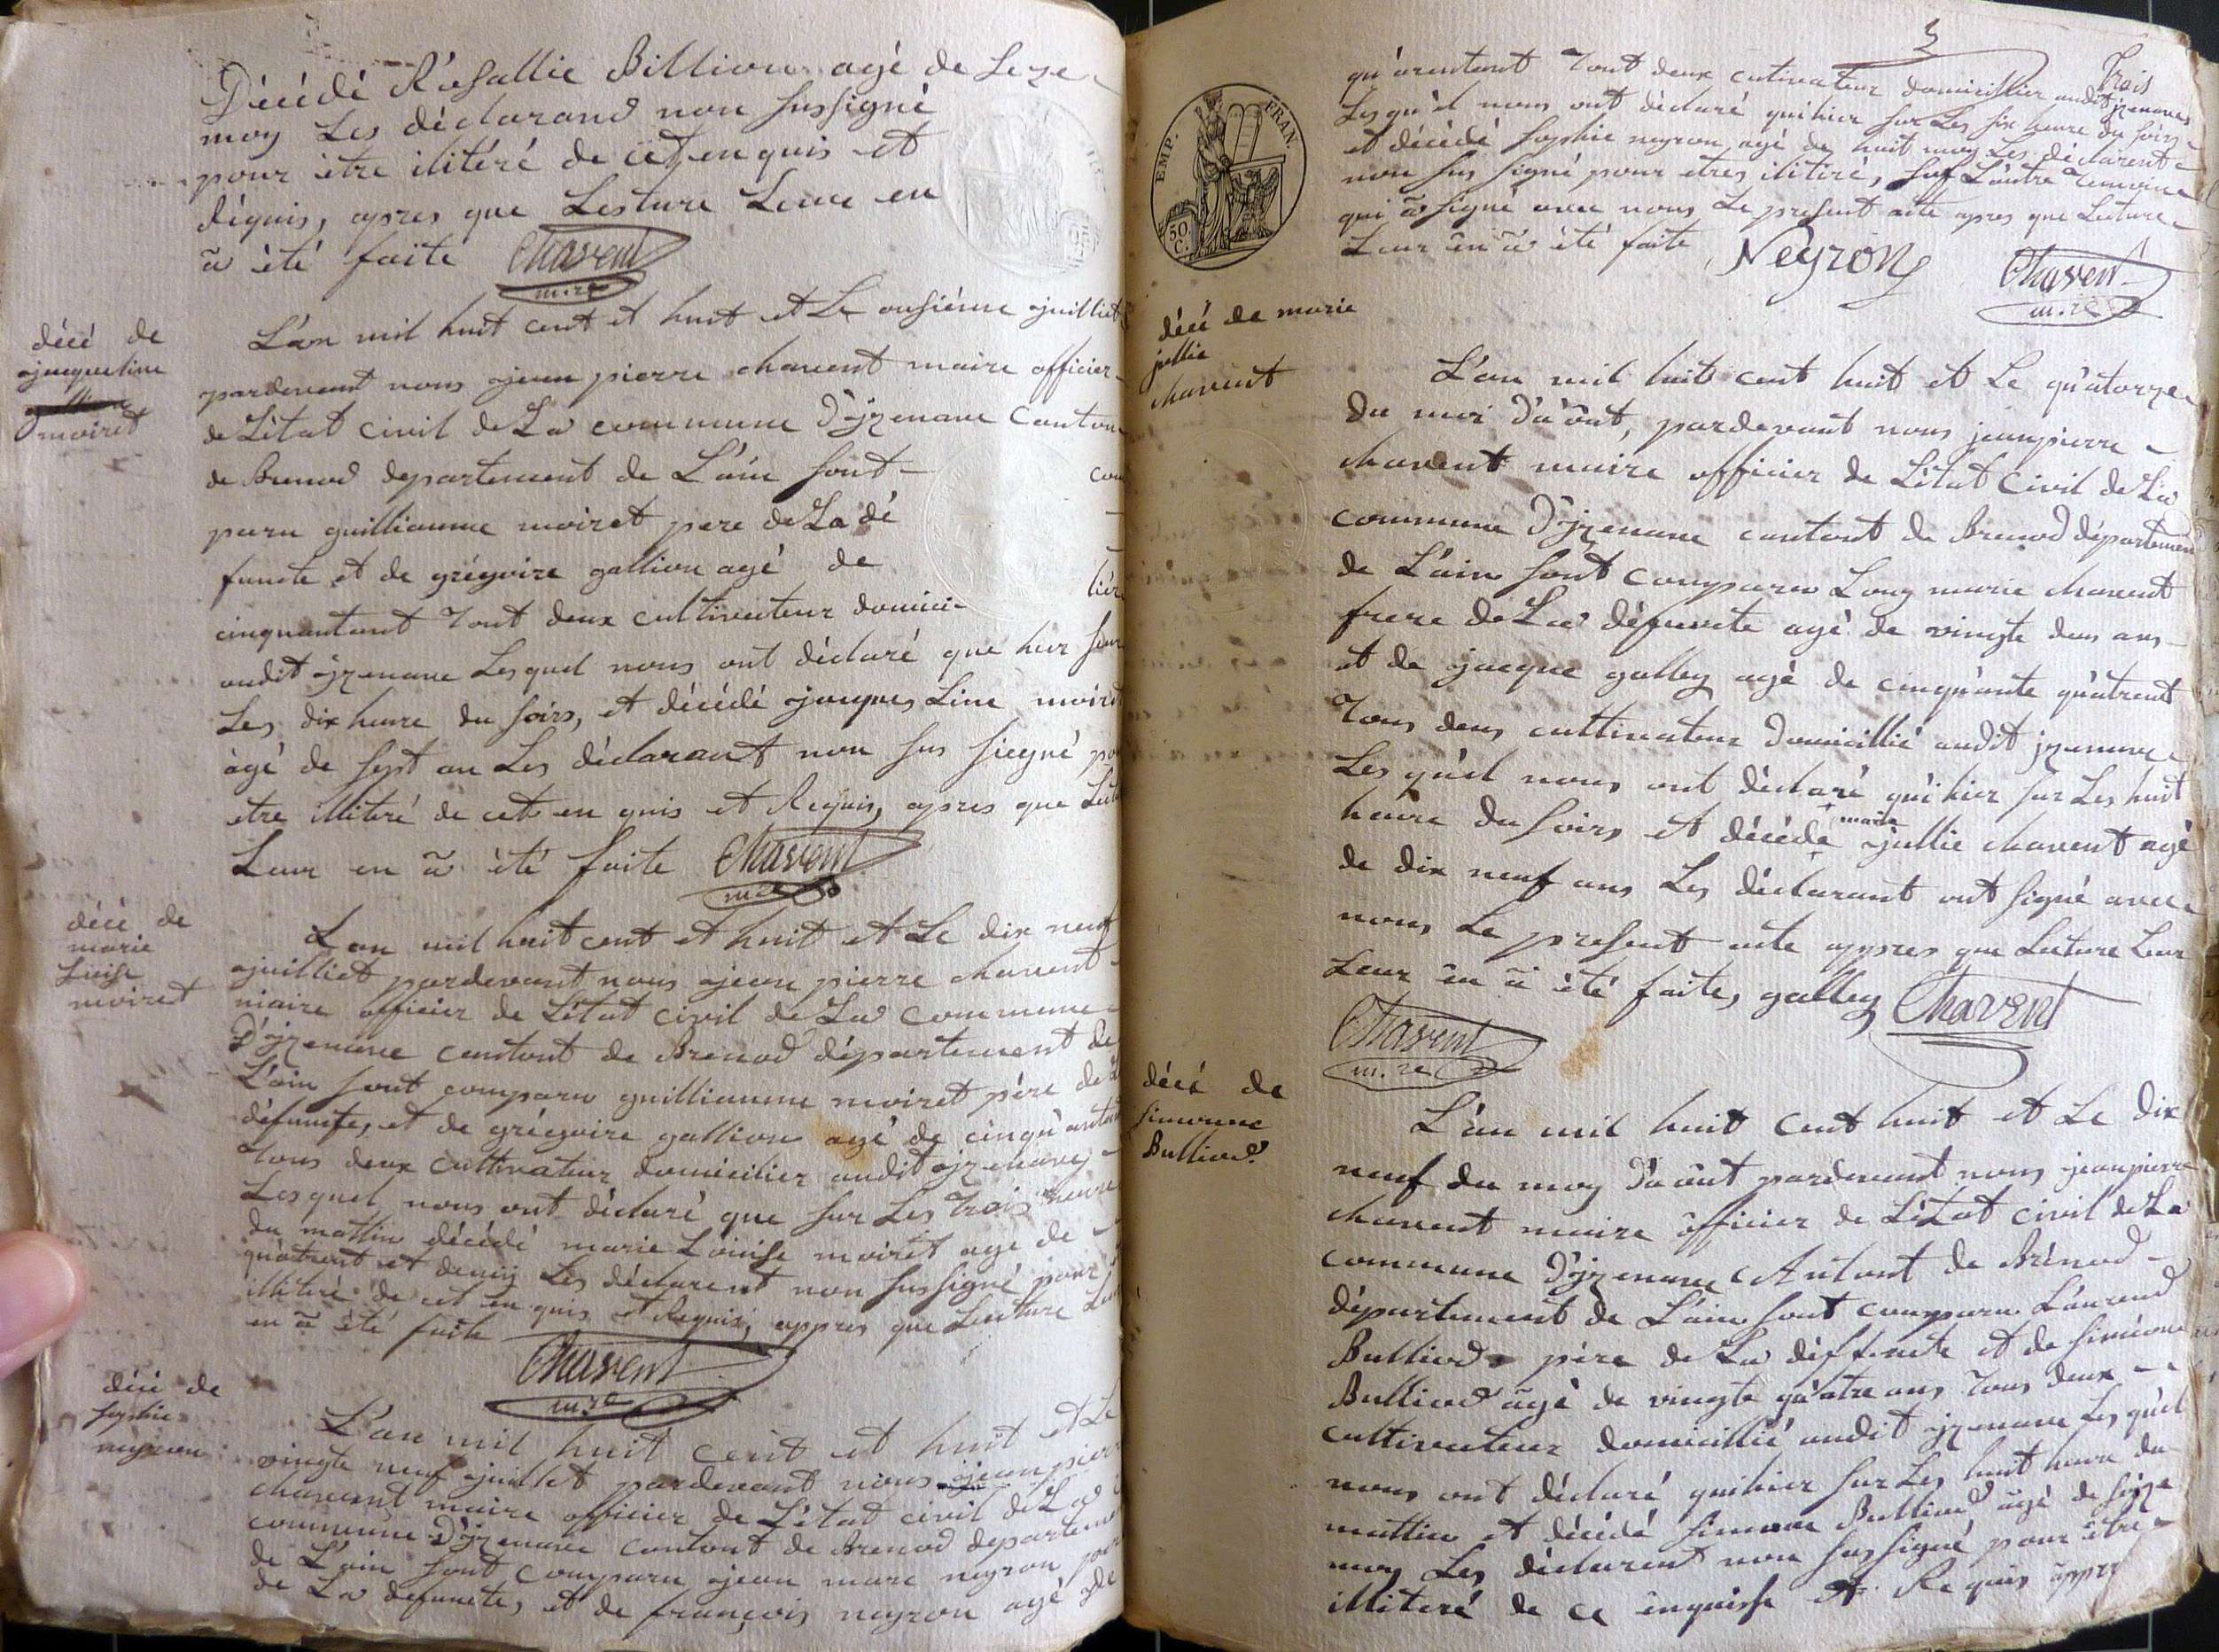 Décédé Rosallie Billion agé de seze
moy Les déclarand non sussigné
pour être ilitéré de cet en quis et
déquis, apres que Lesture Leur en
à été faite Chavent
m.re
décé de
ajacqueline
moiret
L'an mil huit cent et huit et Le onsiéme ajuilliet
pardevant nous ajean pierre chavent maire officier
de L'état civil de La commune D'jzenave Canton
de Brenod departement de L'ain sont
paru guilliaume moiret pere de La dé
functe et de grégoire gallion agé de
cinquantant tout deux cultivateur domici-
audit ajzenave Lesquel nous ont déclaré que hier sur
Les dix heure du soirs, et décédé ajacques Line moiret
àgé de sept an Les déclarant non sus siegné
etre illitéré de cet en quis et Requis, apres que
Leur en à été faite Chavent
m.re
décé de
marie
Luise
moiret
L'an mil huit cent et huit et Le dix neuf
ajuilliet pardevant nous ajean pierre chavent
maire officier de L'état civil de La commune
D'ajzenave cantont de Brenod département de
L'ain sont comparu guilliaume moiret père de La
défunte, et de grégoire gallion agé de cinqu'antant
tous deux cultivateur domicilier audit ajzenave
Lesquel nous ont déclaré que sur Les trois heure
du mattin décédé marie Louise moiret age de
quatrent et demij Les déclarent non sussigné pour
illitéré de cet en quis et Requis, appres que Lecture
en à été faite Chavent
m.re
décé de
sophie
neyron
L'an mil huit cent et huit et Le
vingte neuf ajuillet pardevant nous ajean pierre
chavent maire officier de L'état civil de La
commune D'jzenave cantont de Brenod departement
de L'ain sont comparu ajean marc neyron
de La defuncte, et de françois neyron agé de
3
Trois
qu'arentent tout deux cutivateur domicillier audit jzenave
Lesqu'el nous ont déclaré qui hier sur Les six heure du soirs
et décédé sophie neyron agé de huit moy Les déclarent
non sus signé pour etres ilitéré, suf L'autre temoins
qui à signé avec nous Le present acte apres que Lecture
Leur en à été faite Neyron Chavent
m.re
EMP. FRAN.
50 C.
décé de marie
jullie
chavent
L'an mil huit cent huit et Le qu'atorze
du moi D'août, pardevant nous jeanpierre
chavent maire officier de L'état civil de La
commune D'jzenave cantont de Brenod département
de L'ain sont comparu Louy marie chavent
frere de La défuncte agé de vingte deus ans
et de ajacque galley agé de cinqu'ante qu'atrent
Tous deus cultivateur Domicillié audit jzenave
Lesqu'el nous ont déclaré qu'i hier sur Les huit
heure du soirs et décédé marie ajullie chavent agé
de dix neuf ans Les déclarant ont signé avec
nous Le present acte appres que Lecture Leur
Leur en à été faite, galley Chavent
Chavent
m.re
décé de
simonne
Bulliod
L'an mil huit cent huit et Le dix
neuf du moy D'août pardevant nous jeanpierre
chavent maire officier de L'état civil de La
commune D'jzenave cantont de Brénod
département de L'ain sont comparu Laurend
Bulliod père de La deffuncte et de siméond
Bulliod agé de vingte qu'atre ans Tous deux
cultivateur domicillié audit ajzenave Lesqu'el
nous ont déclaré qui hier sur Les huit heure du
mattin et décédé simonne Bulliod agé de sèzze
moy Les déclarent non sussigné pour être
illiteré de ce enquisse et Requis appres